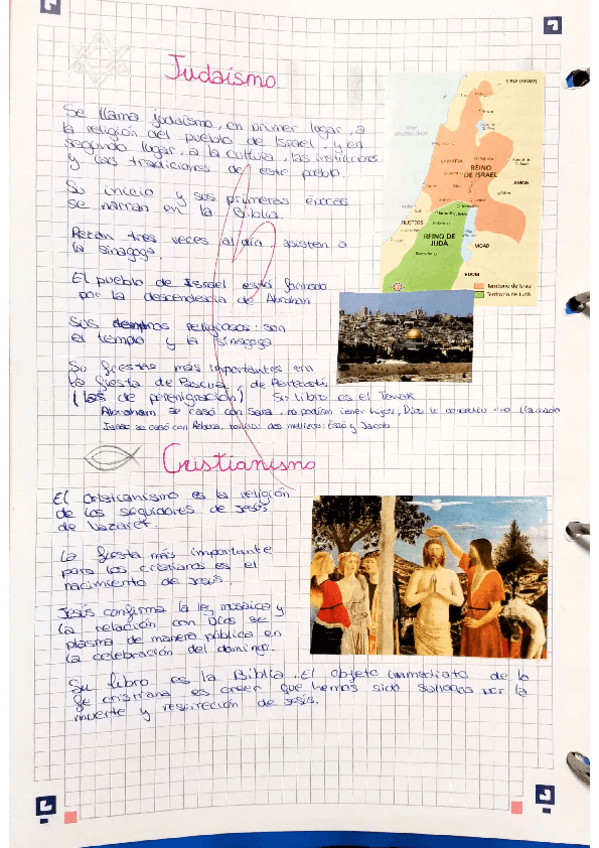 Judaísmo
Se llama judaísmo, en primer lugar, a
la religión del pueblo de Israel, y en
segundo lugar, a la cultura, las instituciones
y las tradiciones de este pueblo.
Su inicio y sus primeras épocas
se narran en la Biblia.
Rezan tres veces al día asisten a
la sinagoga.
El pueblo de Israel está formado
por la descendescia de Abrahan
Sus religiosos: son
el templo y la sinagoga
Su fiestas más importantes era
la fiesta de Pascua, de Pentecostés
(las de peregrigación) Su libro es el Tanak
Abraham se casó con Sara, no podían tener hijos, Dios le concedio uno llamado
Isaac se casó con Rebeca, tuvieron dos mellizos: Esaú y Jacob
REINO
DE ISRAEL
SAMARIA
REINO DE
JUDÁ
FILISTEOS
MOAB
EDOM
Mar
Mediterráneo
Territorio de Israel
Territorio de Judá
Cristianismo
El cristianismo es la religión
de los seguidores de Jesús
de Nazaret.
La fiesta más importante
para los cristianos es el
nacimiento de Jesús.
Jesús confirma la ley mosaica y
la relación con Dios se
plasma de manera pública en
la celebración del domingo.
Su libro es la Biblia. El objeto inmediato de la
fe cristiana es creer que hemos sido salvados por la
muerte y resureción de Jesús.